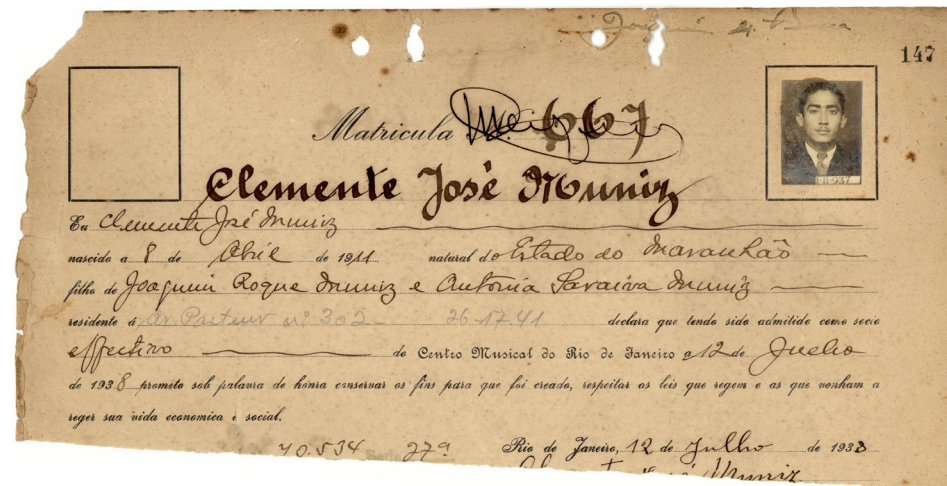 Joaquim
147
Matricula 667
Clemente José Muniz
1-11-937
Eu Clemente José Muniz
nascido a 8 de Abril de 1911 natural do Estado do Maranhão
filho de Joaquim Roque Muniz e Antonia Saraiva Muniz
residente á Av. Pasteur nº 302 - 26-17-41 declara que tendo sido admittido como socio
effectivo do Centro Musical do Rio de Janeiro a 12 de Julho
de 1938 prometo sob palavra de honra conservar os fins para que foi creado, respeitar as leis que regem e as que venham a
reger sua vida economica e social.
70.534 27ª Rio de Janeiro, 12 de Julho de 1938
Clemente José Muniz